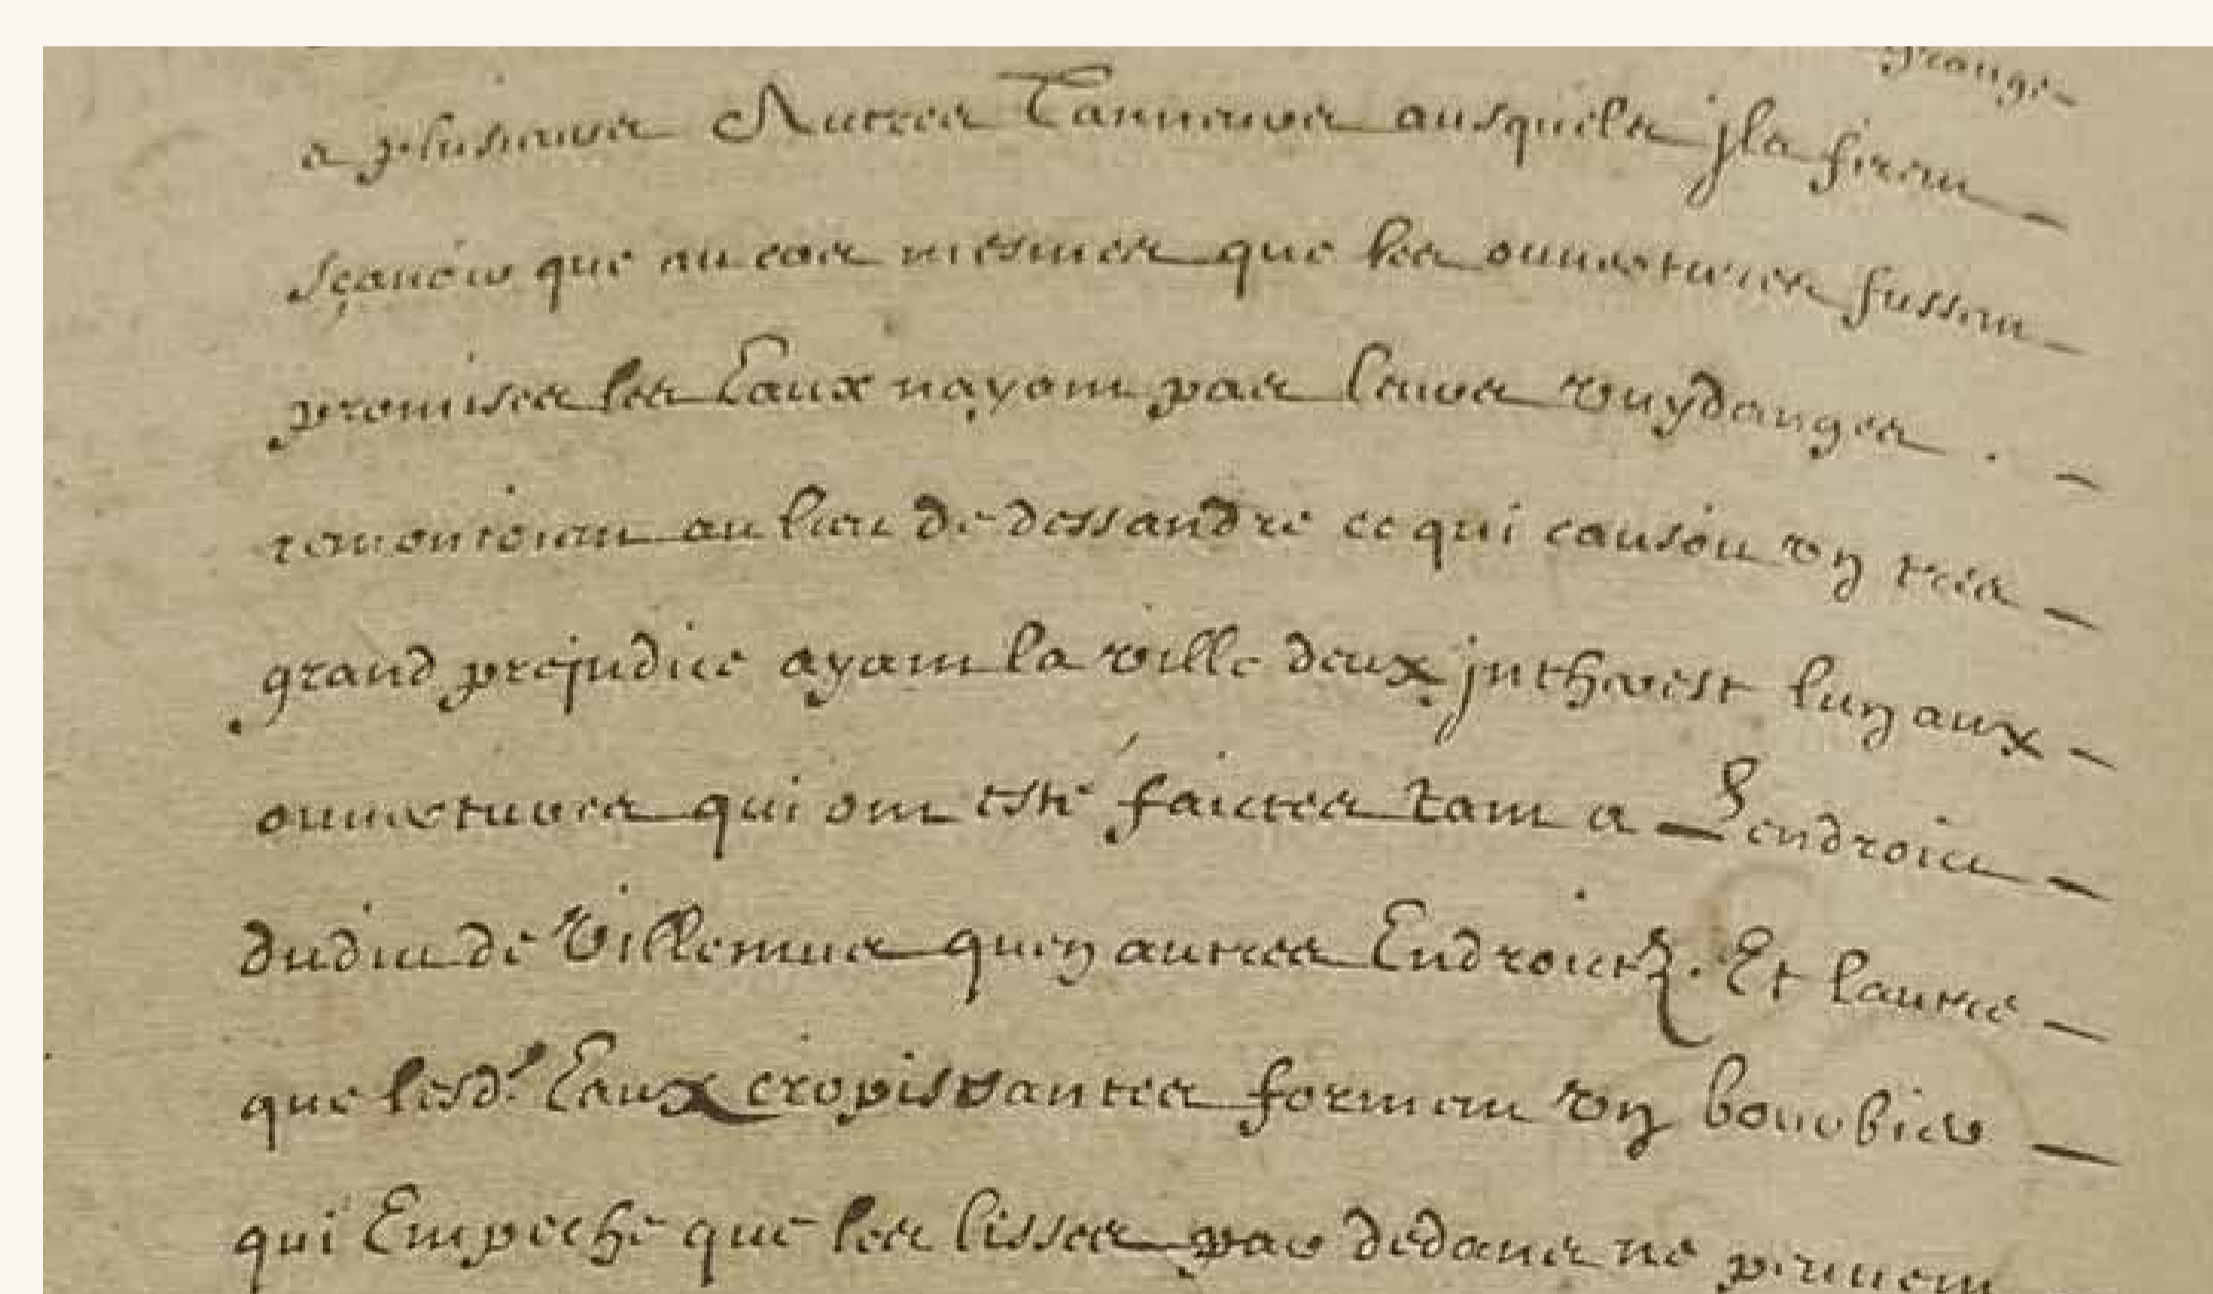 grange
a plusieurs Autres Tanneurs ausquels jls firent
sçauoir que au cas mesmes que les ouuertures fussent
promises les Eaux nayant pas leurs vuydanges
remontoient au lieu de dessandre ce qui causoit vn tres
grand prejudice ayant la ville deux jntherest lun aux
ouuertures qui ont esté faictes tant a Lendroict
dudit de Villemur quen autres Endroictz. Et lautre
que lesd. Eaux cropissantes forment vn bourbier
qui Empeche que les lisses par dedans ne peuuent